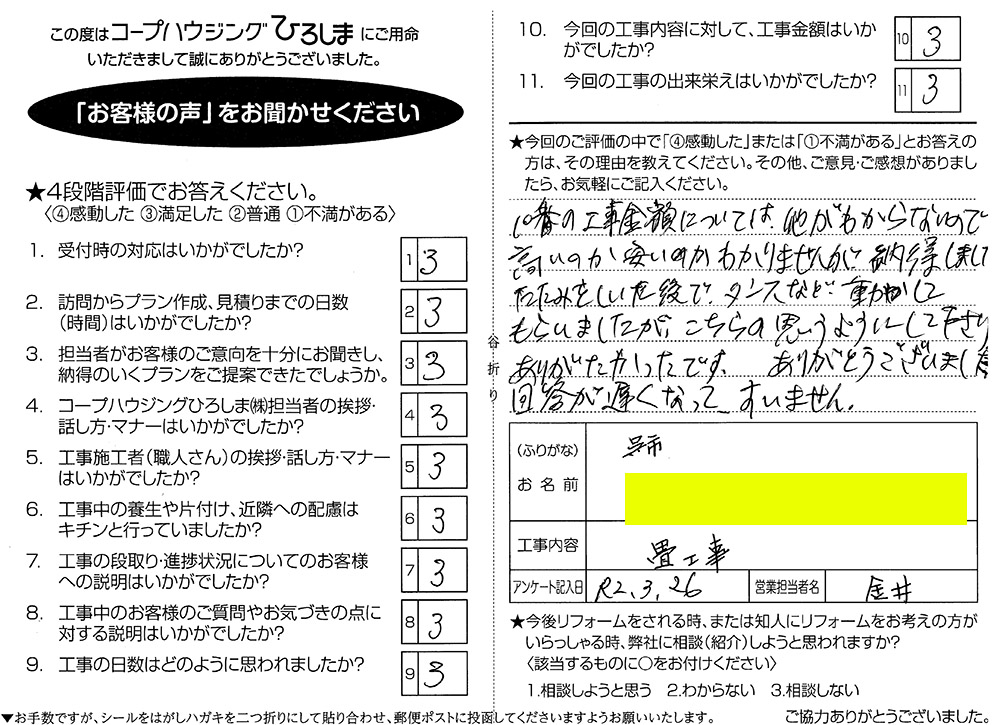 この度はコープハウジングひろしまにご用命
いただきまして誠にありがとうございました。
「お客様の声」をお聞かせください
★4段階評価でお答えください。
〈④感動した ③満足した ②普通 ①不満がある〉
1. 受付時の対応はいかがでしたか?
1 3
2. 訪問からプラン作成、見積りまでの日数
（時間）はいかがでしたか?
2 3
3. 担当者がお客様のご意向を十分にお聞きし、
納得のいくプランをご提案できたでしょうか。
3 3
4. コープハウジングひろしま㈱担当者の挨拶・
話し方・マナーはいかがでしたか?
4 3
5. 工事施工者（職人さん）の挨拶・話し方・マナー
はいかがでしたか?
5 3
6. 工事中の養生や片付け、近隣への配慮は
キチンと行っていましたか?
6 3
7. 工事の段取り・進捗状況についてのお客様
への説明はいかがでしたか?
7 3
8. 工事中のお客様のご質問やお気づきの点に
対する説明はいかがでしたか?
8 3
9. 工事の日数はどのように思われましたか?
9 3
▼お手数ですが、シールをはがしハガキを二つ折りにして貼り合わせ、郵便ポストに投函してくださいますようお願いいたします。
谷折り
10. 今回の工事内容に対して、工事金額はいか
がでしたか?
10 3
11. 今回の工事の出来栄えはいかがでしたか?
11 3
★今回のご評価の中で「④感動した」または「①不満がある」とお答えの
方は、その理由を教えてください。その他、ご意見・ご感想がありまし
たら、お気軽にご記入ください。
10番の工事金額については、他がわからないので
高いのか安いのかわかりませんが、納得しまして
たたみをしいた後で、タンスなど、動かして
もらいましたが、こちらの思うようにして下さり
ありがたかったです。 ありがとうございました
回答が遅くなって すいません。
（ふりがな）
お名前
呉市
工事内容
畳工事
アンケート記入日 R2.3.26 営業担当者名 金井
★今後リフォームをされる時、または知人にリフォームをお考えの方が
いらっしゃる時、弊社に相談（紹介）しようと思われますか?
〈該当するものに○をお付けください〉
1.相談しようと思う 2.わからない 3.相談しない
ご協力ありがとうございました。